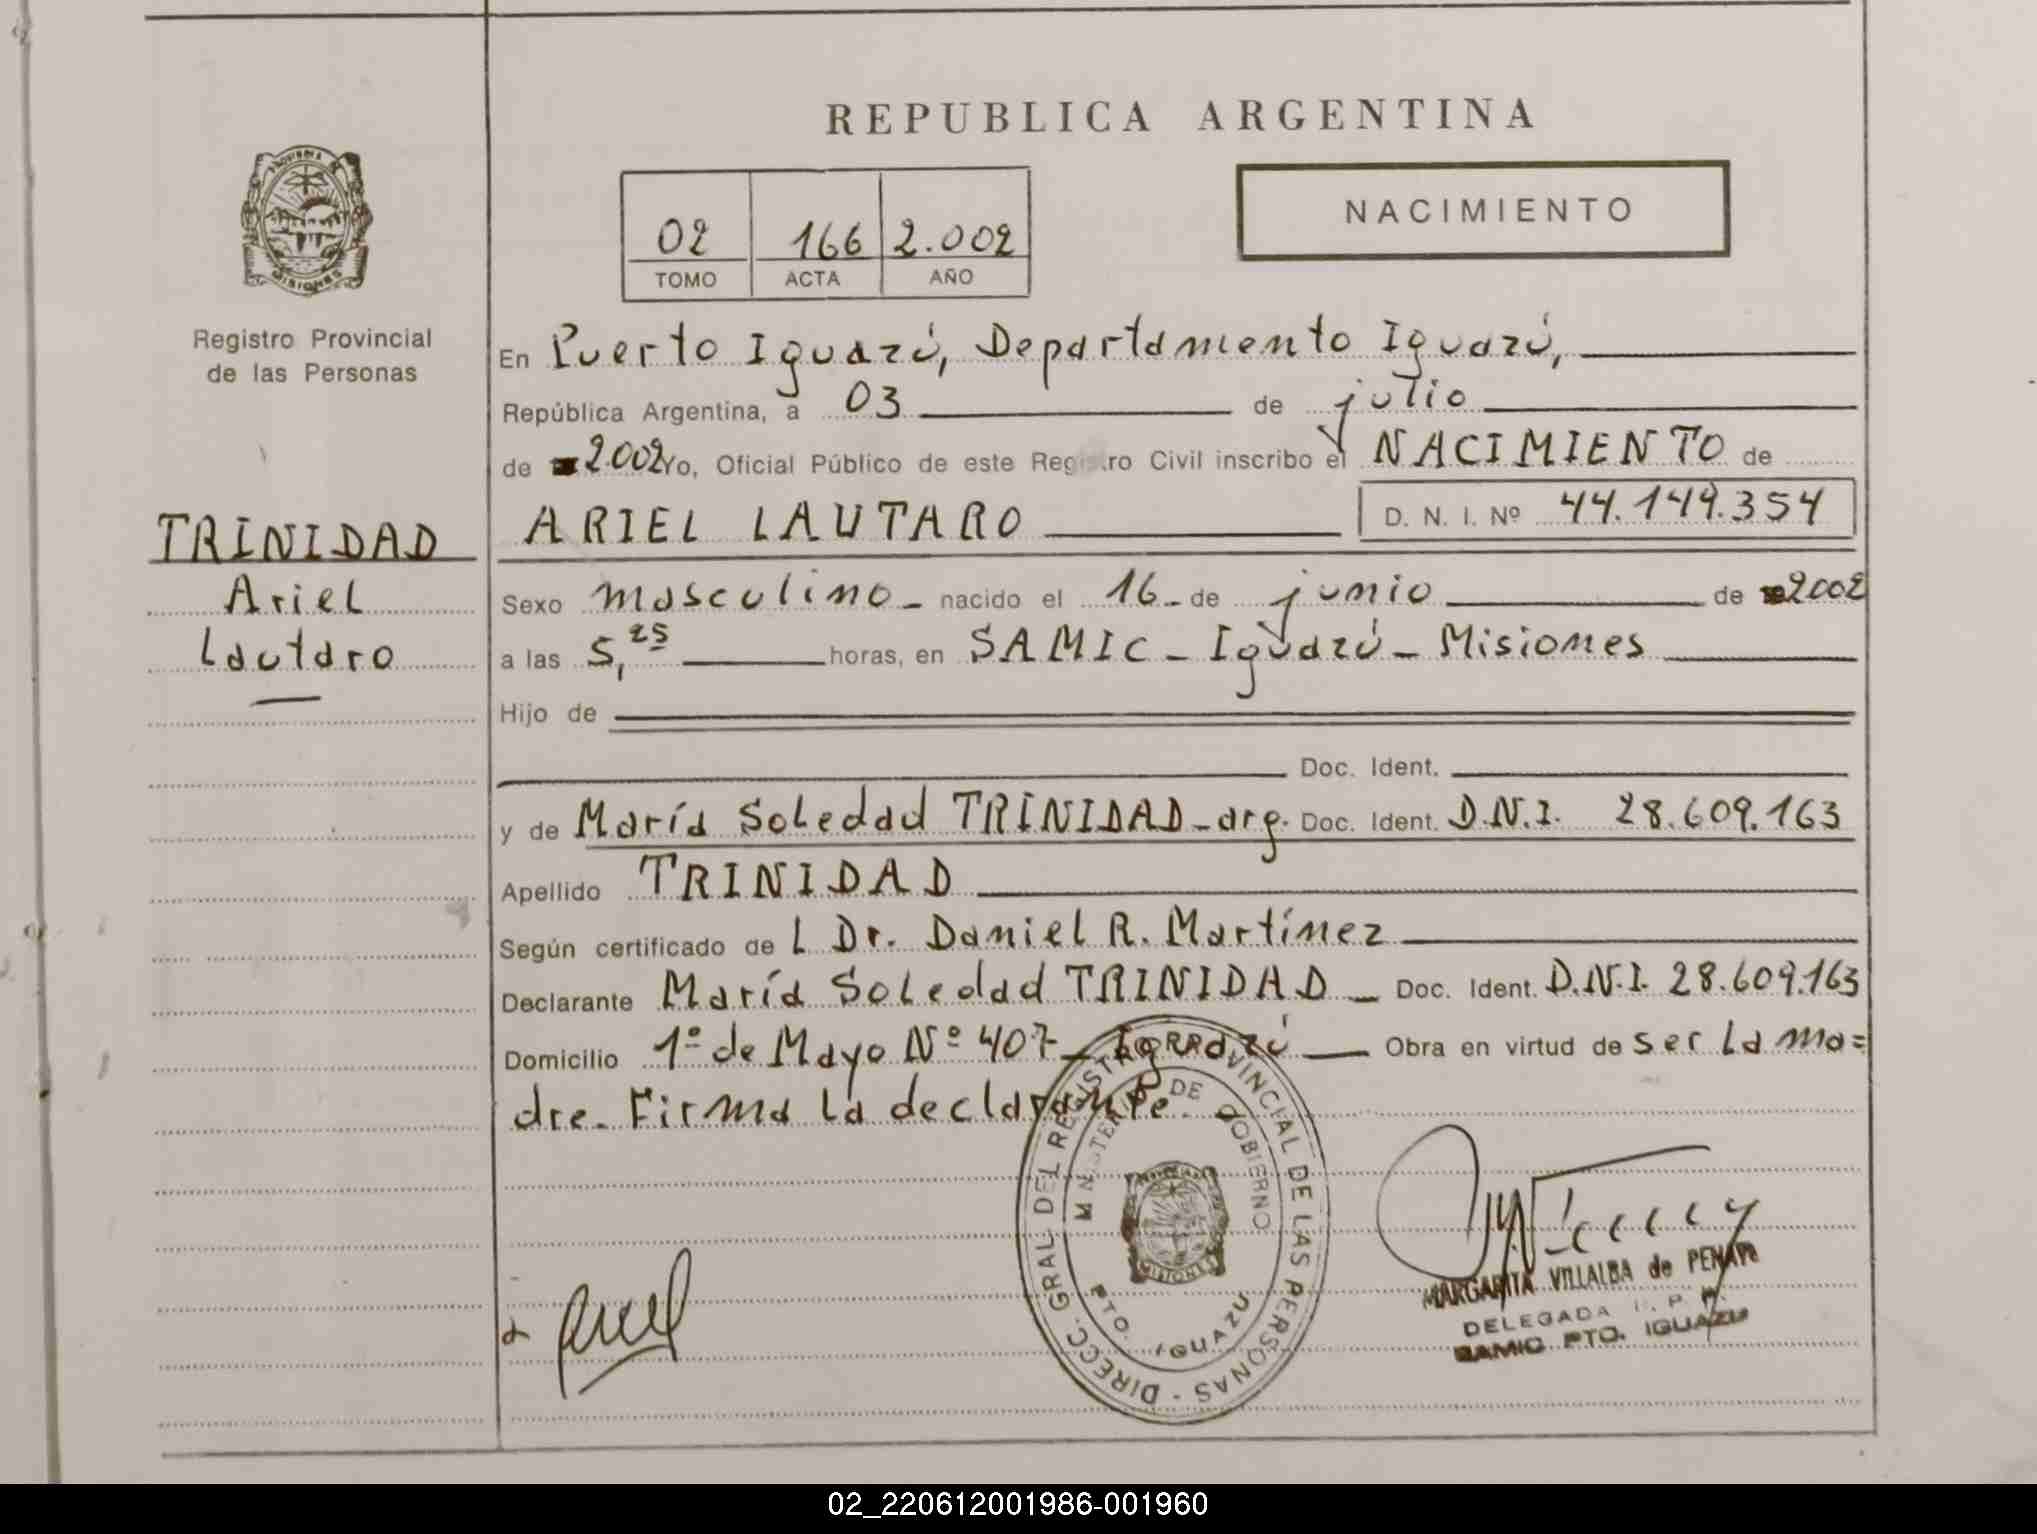 REPUBLICA ARGENTINA
PROVINCIA DE MISIONES
Registro Provincial
de las Personas
02 166 2.002
TOMO ACTA AÑO
NACIMIENTO
TRINIDAD
Ariel
Lautaro
En Puerto Iguazú, Departamento Iguazú,
República Argentina, a 03 de julio
de 2.002 Yo, Oficial Público de este Registro Civil inscribo el NACIMIENTO de
ARIEL LAUTARO D. N. I. Nº 44.149.354
Sexo masculino nacido el 16 de junio de 2002
a las 5,25 horas, en SAMIC - Iguazú - Misiones
Hijo de
Doc. Ident.
y de María Soledad TRINIDAD - arg. Doc. Ident. D.N.I. 28.609.163
Apellido TRINIDAD
Según certificado de L Dr. Daniel R. Martínez
Declarante María Soledad TRINIDAD Doc. Ident. D.N.I. 28.609.163
Domicilio 1º de Mayo Nº 407 - Iguazú Obra en virtud de ser la ma=
dre. Firma la declarante.
DIRECC. GRAL DEL REGISTRO PROVINCIAL DE LAS PERSONAS -
MINISTERIO DE GOBIERNO
MISIONES
PTO. IGUAZU
MARGARITA VILLALBA de PENAYO
DELEGADA R. P. P.
SAMIC PTO. IGUAZU
02_220612001986-001960